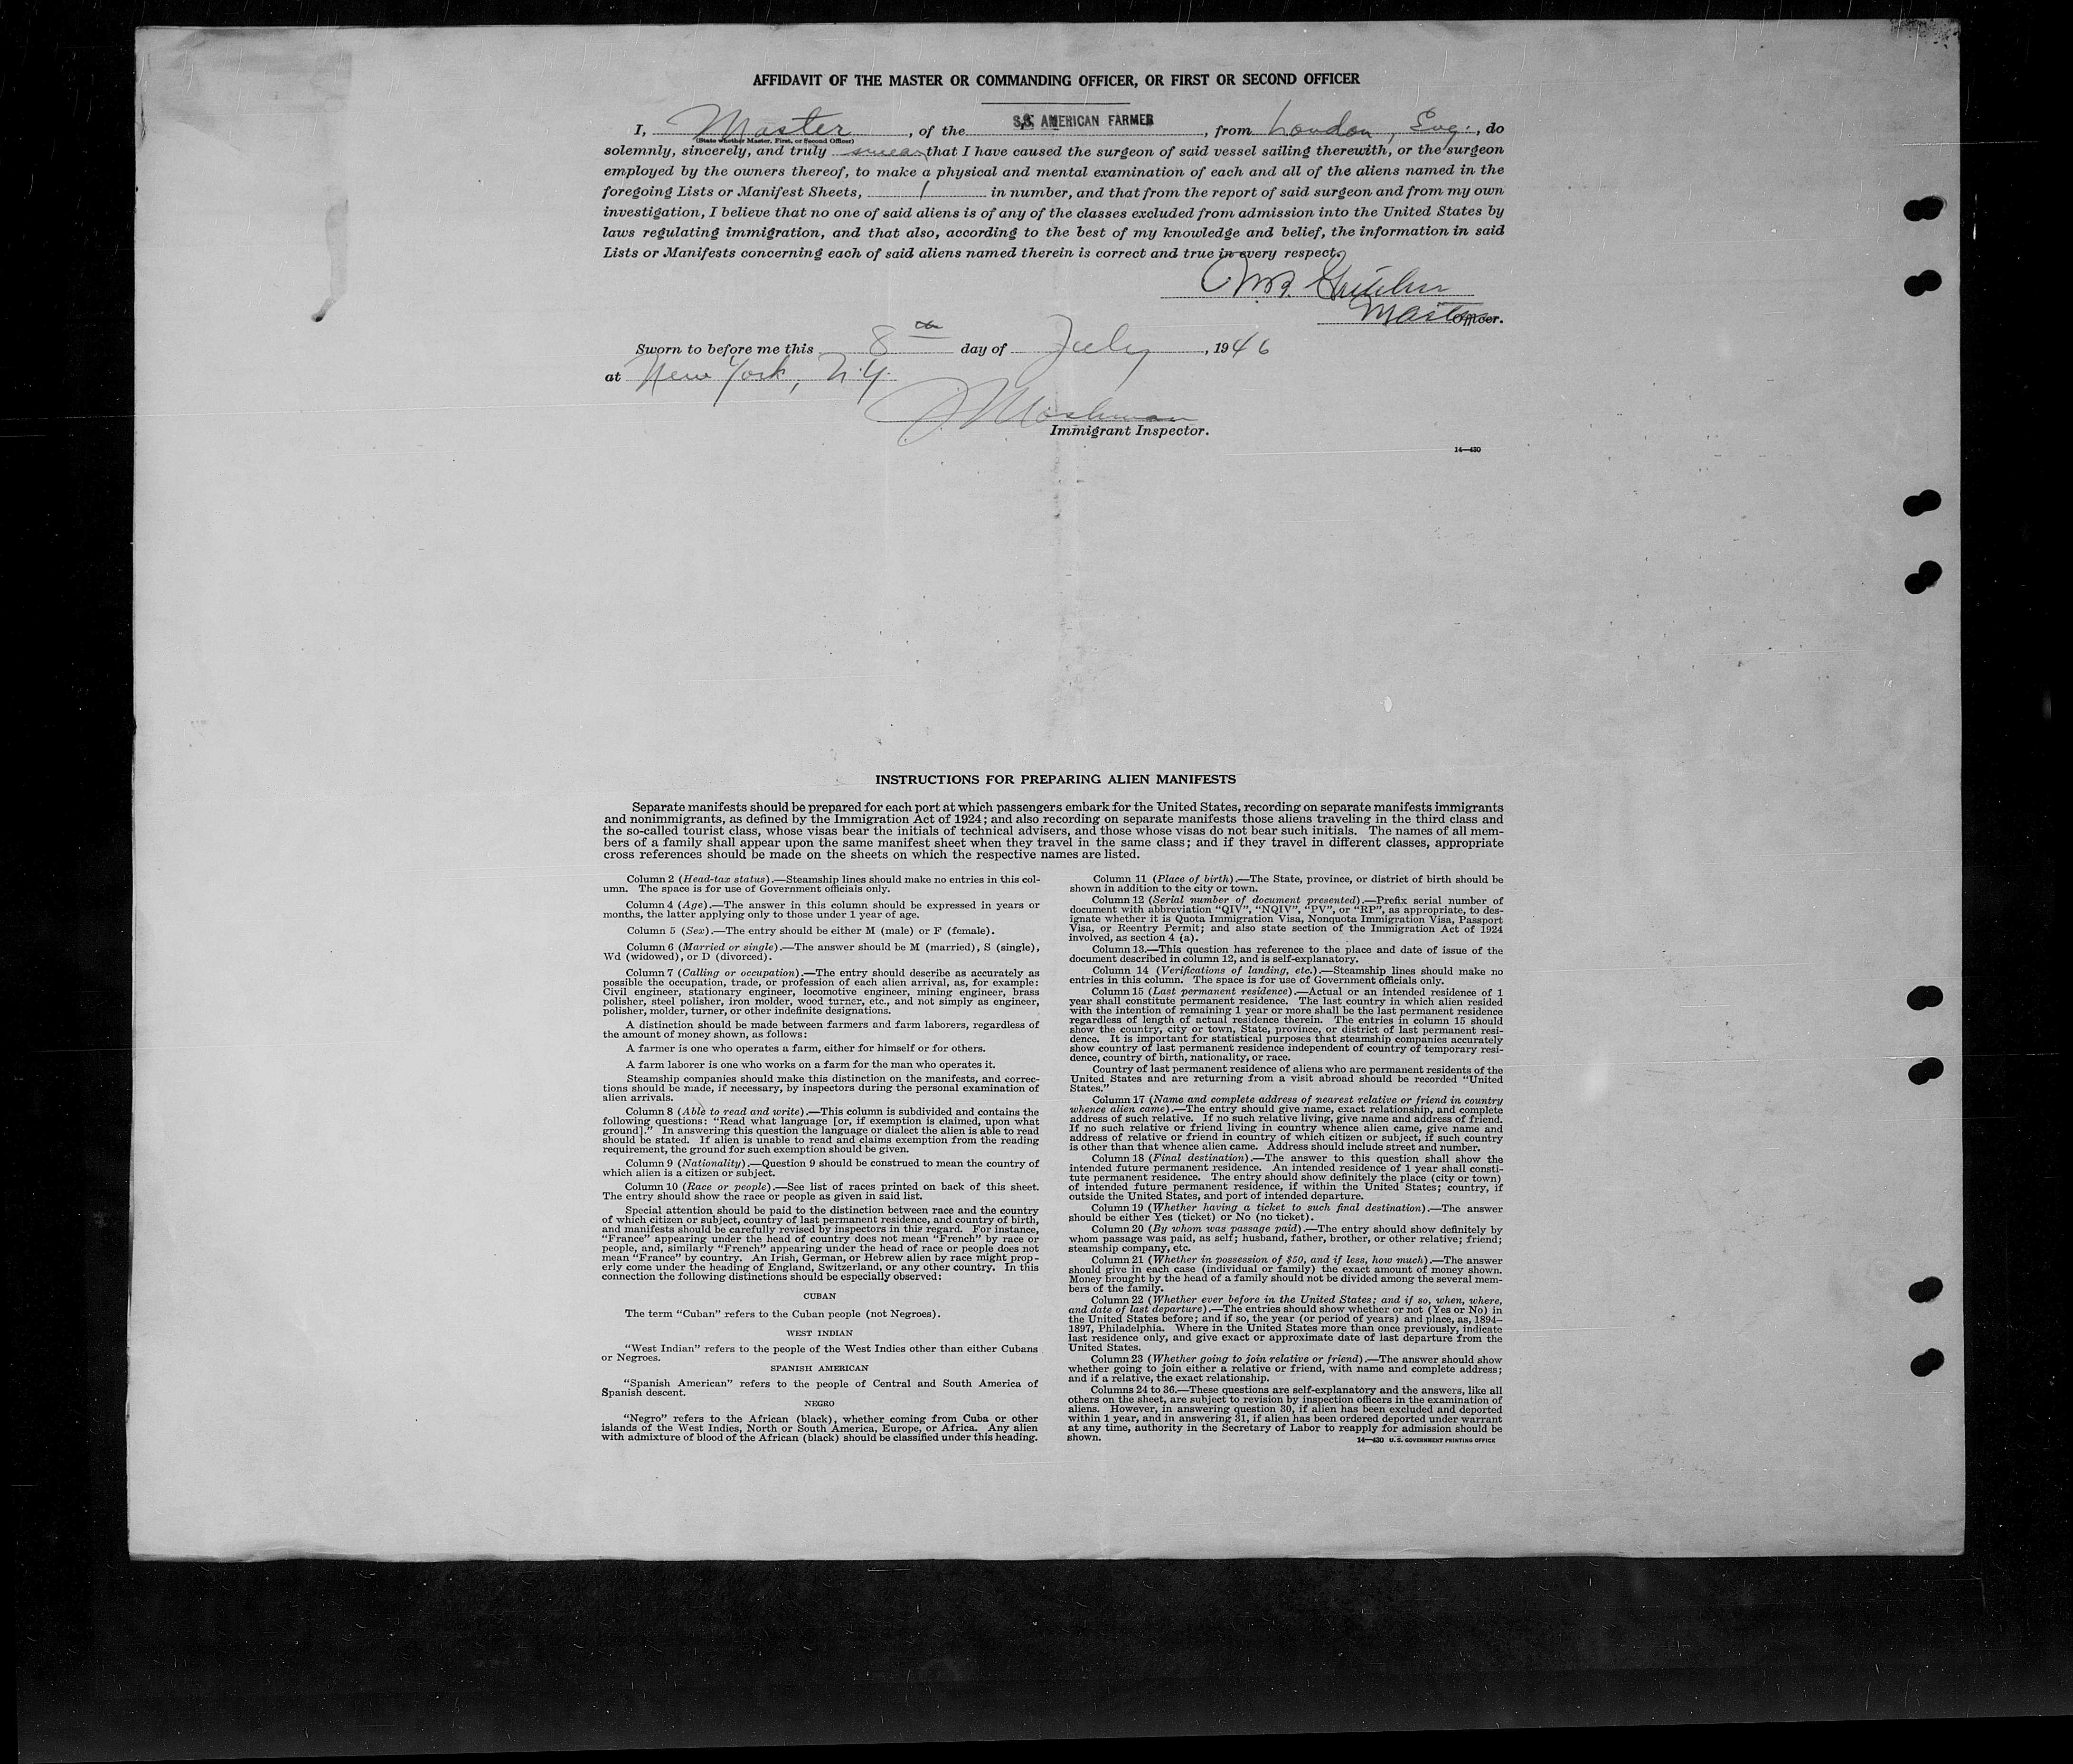 AFFIDAVIT OF THE MASTER OR COMMANDING OFFICER, OR FIRST OR SECOND OFFICER
I, Master, of the S.S. AMERICAN FARMER, from London, Eng., do
(State whether Master, First, or Second Officer)
solemnly, sincerely, and truly swear that I have caused the surgeon of said vessel sailing therewith, or the surgeon
employed by the owners thereof, to make a physical and mental examination of each and all of the aliens named in the
foregoing Lists or Manifest Sheets, 1 in number, and that from the report of said surgeon and from my own
investigation, I believe that no one of said aliens is of any of the classes excluded from admission into the United States by
laws regulating immigration, and that also, according to the best of my knowledge and belief, the information in said
Lists or Manifests concerning each of said aliens named therein is correct and true in every respect.
Master Officer.
Sworn to before me this 8th day of July, 1946
at New York, N.Y.
Immigrant Inspector.
14—430
INSTRUCTIONS FOR PREPARING ALIEN MANIFESTS
Separate manifests should be prepared for each port at which passengers embark for the United States, recording on separate manifests immigrants
and nonimmigrants, as defined by the Immigration Act of 1924; and also recording on separate manifests those aliens traveling in the third class and
the so-called tourist class, whose visas bear the initials of technical advisers, and those whose visas do not bear such initials. The names of all mem-
bers of a family shall appear upon the same manifest sheet when they travel in the same class; and if they travel in different classes, appropriate
cross references should be made on the sheets on which the respective names are listed.
Column 2 (Head-tax status).—Steamship lines should make no entries in this col-
umn. The space is for use of Government officials only.
Column 4 (Age).—The answer in this column should be expressed in years or
months, the latter applying only to those under 1 year of age.
Column 5 (Sex).—The entry should be either M (male) or F (female).
Column 6 (Married or single).—The answer should be M (married), S (single),
Wd (widowed), or D (divorced).
Column 7 (Calling or occupation).—The entry should describe as accurately as
possible the occupation, trade, or profession of each alien arrival, as, for example:
Civil engineer, stationary engineer, locomotive engineer, mining engineer, brass
polisher, steel polisher, iron molder, wood turner, etc., and not simply as engineer,
polisher, molder, turner, or other indefinite designations.
A distinction should be made between farmers and farm laborers, regardless of
the amount of money shown, as follows:
A farmer is one who operates a farm, either for himself or for others.
A farm laborer is one who works on a farm for the man who operates it.
Steamship companies should make this distinction on the manifests, and correc-
tions should be made, if necessary, by inspectors during the personal examination of
alien arrivals.
Column 8 (Able to read and write).—This column is subdivided and contains the
following questions: "Read what language [or, if exemption is claimed, upon what
ground]." In answering this question the language or dialect the alien is able to read
should be stated. If alien is unable to read and claims exemption from the reading
requirement, the ground for such exemption should be given.
Column 9 (Nationality).—Question 9 should be construed to mean the country of
which alien is a citizen or subject.
Column 10 (Race or people).—See list of races printed on back of this sheet.
The entry should show the race or people as given in said list.
Special attention should be paid to the distinction between race and the country
of which citizen or subject, country of last permanent residence, and country of birth,
and manifests should be carefully revised by inspectors in this regard. For instance,
"France" appearing under the head of country does not mean "French" by race or
people, and, similarly "French" appearing under the head of race or people does not
mean "France" by country. An Irish, German, or Hebrew alien by race might prop-
erly come under the heading of England, Switzerland, or any other country. In this
connection the following distinctions should be especially observed:
CUBAN
The term "Cuban" refers to the Cuban people (not Negroes).
WEST INDIAN
"West Indian" refers to the people of the West Indies other than either Cubans
or Negroes.
SPANISH AMERICAN
"Spanish American" refers to the people of Central and South America of
Spanish descent.
NEGRO
"Negro" refers to the African (black), whether coming from Cuba or other
islands of the West Indies, North or South America, Europe, or Africa. Any alien
with admixture of blood of the African (black) should be classified under this heading.
Column 11 (Place of birth).—The State, province, or district of birth should be
shown in addition to the city or town.
Column 12 (Serial number of document presented).—Prefix serial number of
document with abbreviation "QIV", "NQIV", "PV", or "RP", as appropriate, to des-
ignate whether it is Quota Immigration Visa, Nonquota Immigration Visa, Passport
Visa, or Reentry Permit; and also state section of the Immigration Act of 1924
involved, as section 4 (a).
Column 13.—This question has reference to the place and date of issue of the
document described in column 12, and is self-explanatory.
Column 14 (Verifications of landing, etc.).—Steamship lines should make no
entries in this column. The space is for use of Government officials only.
Column 15 (Last permanent residence).—Actual or an intended residence of 1
year shall constitute permanent residence. The last country in which alien resided
with the intention of remaining 1 year or more shall be the last permanent residence
regardless of length of actual residence therein. The entries in column 15 should
show the country, city or town, State, province, or district of last permanent resi-
dence. It is important for statistical purposes that steamship companies accurately
show country of last permanent residence independent of country of temporary resi-
dence, country of birth, nationality, or race.
Country of last permanent residence of aliens who are permanent residents of the
United States and are returning from a visit abroad should be recorded "United
States."
Column 17 (Name and complete address of nearest relative or friend in country
whence alien came).—The entry should give name, exact relationship, and complete
address of such relative. If no such relative living, give name and address of friend.
If no such relative or friend living in country whence alien came, give name and
address of relative or friend in country of which citizen or subject, if such country
is other than that whence alien came. Address should include street and number.
Column 18 (Final destination).—The answer to this question shall show the
intended future permanent residence. An intended residence of 1 year shall consti-
tute permanent residence. The entry should show definitely the place (city or town)
of intended future permanent residence, if within the United States; country, if
outside the United States, and port of intended departure.
Column 19 (Whether having a ticket to such final destination).—The answer
should be either Yes (ticket) or No (no ticket).
Column 20 (By whom was passage paid).—The entry should show definitely by
whom passage was paid, as self; husband, father, brother, or other relative; friend;
steamship company, etc.
Column 21 (Whether in possession of $50, and if less, how much).—The answer
should give in each case (individual or family) the exact amount of money shown.
Money brought by the head of a family should not be divided among the several mem-
bers of the family.
Column 22 (Whether ever before in the United States; and if so, when, where,
and date of last departure).—The entries should show whether or not (Yes or No) in
the United States before; and if so, the year (or period of years) and place, as, 1894–
1897, Philadelphia. Where in the United States more than once previously, indicate
last residence only, and give exact or approximate date of last departure from the
United States.
Column 23 (Whether going to join relative or friend).—The answer should show
whether going to join either a relative or friend, with name and complete address;
and if a relative, the exact relationship.
Columns 24 to 36.—These questions are self-explanatory and the answers, like all
others on the sheet, are subject to revision by inspection officers in the examination of
aliens. However, in answering question 30, if alien has been excluded and deported
within 1 year, and in answering 31, if alien has been ordered deported under warrant
at any time, authority in the Secretary of Labor to reapply for admission should be
shown.
14—430 U.S. GOVERNMENT PRINTING OFFICE